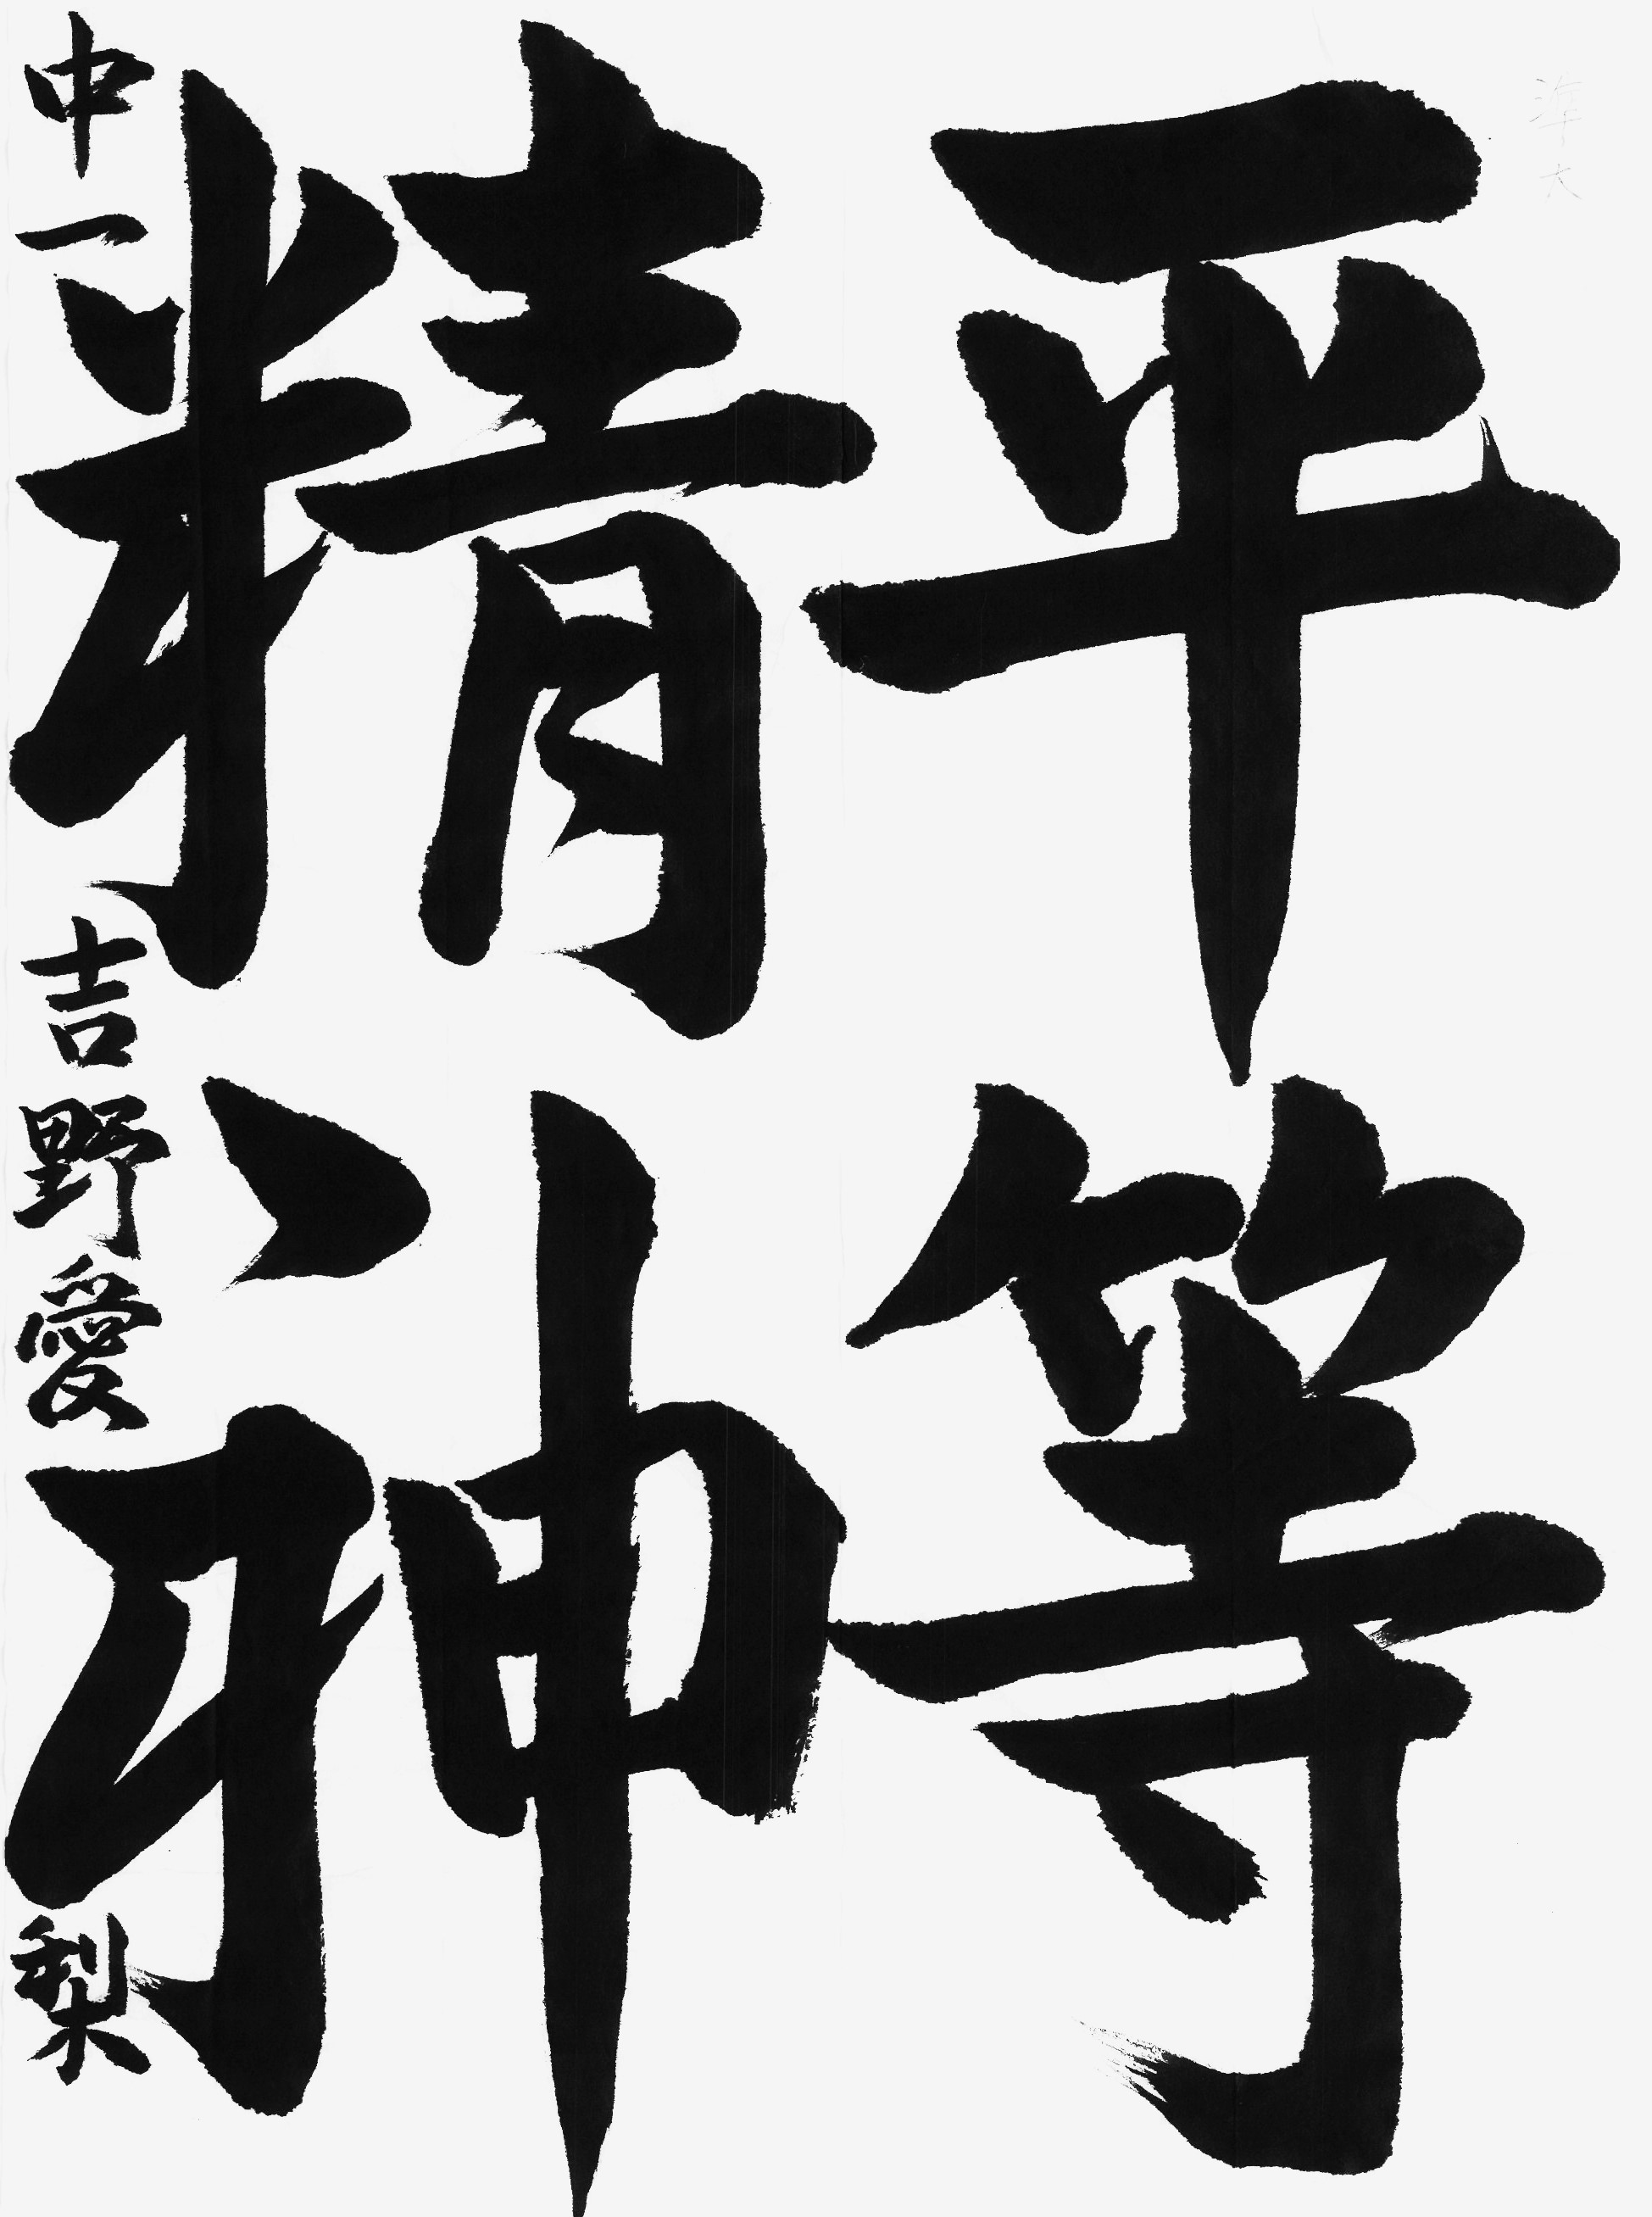 平等
精神
中一 吉野愛梨